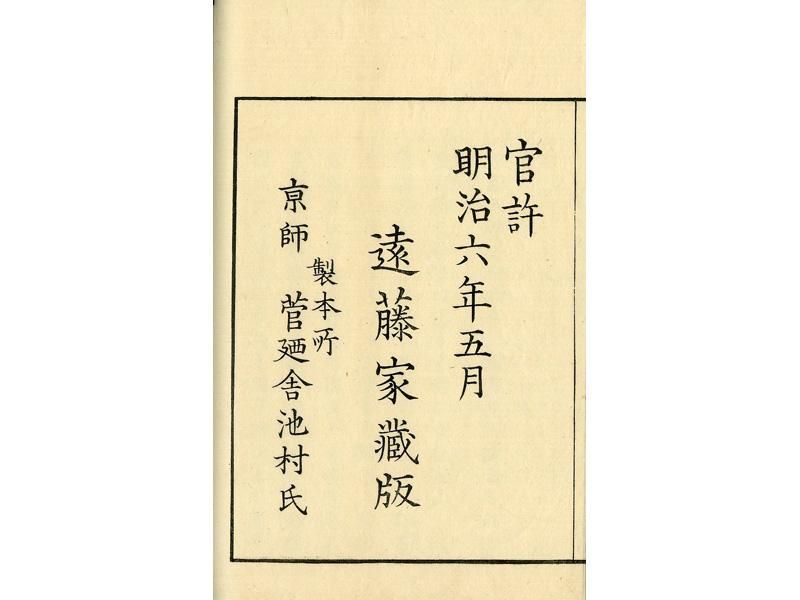 官許
明治六年五月
遠藤家藏版
製本所
亰師 菅廼舎池村氏